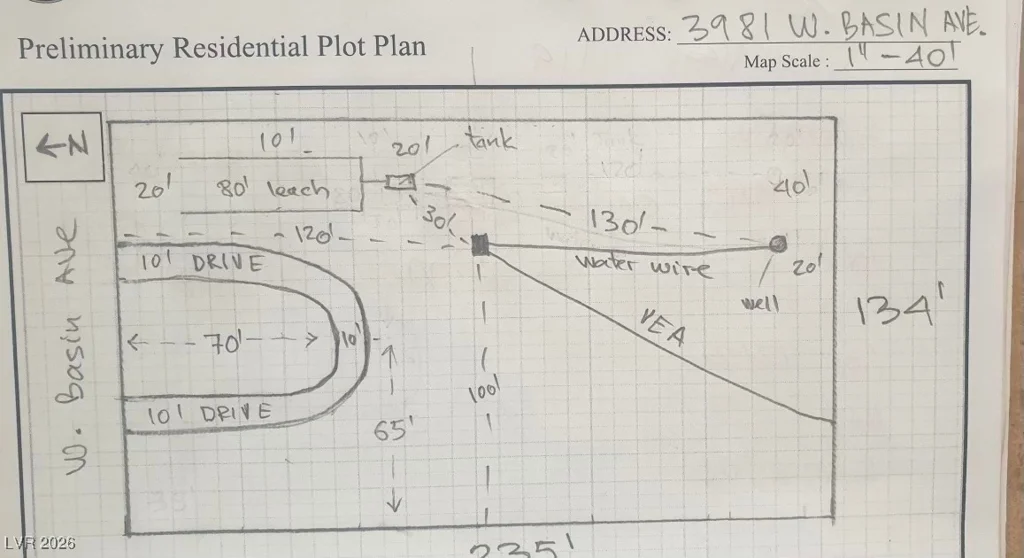 Preliminary Residential Plot Plan
ADDRESS: 3981 W. BASIN AVE.
Map Scale: 1"-40'
←N
10'
20'
tank
20'
80' leach
40'
30'
130'
120'
10' DRIVE
water wire
20'
well
134'
W. Basin AVE
70'
10'
VEA
100'
10' DRIVE
65'
235'
LVR 2026